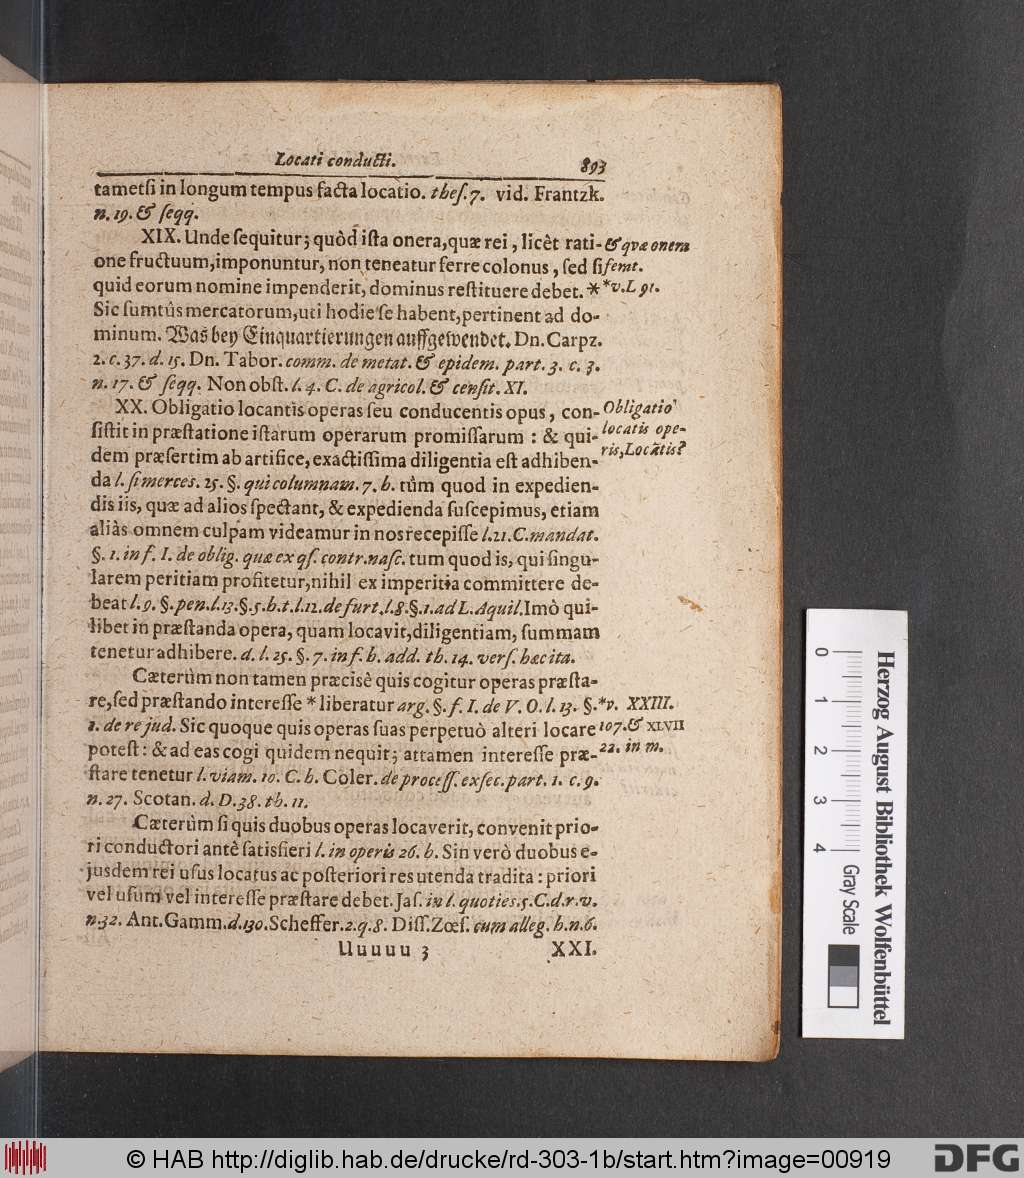 Locati conducti. 893
tametsi in longum tempus facta locatio. thes. 7. vid. Frantzk.
n. 19. & seqq.
XIX. Unde sequitur; quòd ista onera, quæ rei, licèt rati-
one fructuum, imponuntur, non teneatur ferre colonus, sed si
quid eorum nomine impenderit, dominus restituere debet. *
Sic sumtûs mercatorum, uti hodie se habent, pertinent ad do-
minum. Was bey Einquartierungen auffgewendet. Dn. Carpz.
2. c. 37. d. 15. Dn. Tabor. comm. de metat. & epidem. part. 3. c. 3.
n. 17. & seqq. Non obst. l. 4. C. de agricol. & censit. XI.
& quæ onera
femt.
*v. L 91.
XX. Obligatio locantis operas seu conducentis opus, con-
sistit in præstatione istarum operarum promissarum : & qui-
dem præsertim ab artifice, exactissima diligentia est adhiben-
da l. si merces. 25. §. qui columnam. 7. h. tùm quod in expedien-
dis iis, quæ ad alios spectant, & expedienda suscepimus, etiam
aliàs omnem culpam videamur in nos recepisse l. 21. C. mandat.
§. 1. in f. I. de oblig. quæ ex qs. contr. nasc. tum quod is, qui singu-
larem peritiam profitetur, nihil ex imperitia committere de-
beat l. 9. §. pen. l. 13. §. 5. h. t. l. 12. de furt. l. 8. §. 1. ad L. Aquil. Imò qui-
libet in præstanda opera, quam locavit, diligentiam, summam
tenetur adhibere. d. l. 25. §. 7. in f. h. add. th. 14. vers. hæc ita.
Obligatio
locatis ope-
ris, Locatis?
Cæterùm non tamen præcisè quis cogitur operas præsta-
re, sed præstando interesse * liberatur arg. §. f. I. de V. O. l. 13. §.
1. de re jud. Sic quoque quis operas suas perpetuò alteri locare
potest : & ad eas cogi quidem nequit; attamen interesse præ-
stare tenetur l. viam. 10. C. h. Coler. de process. exsec. part. 1. c. 9.
n. 27. Scotan. d. D. 38. th. 11.
*v. XXIII.
107. & XLVII
22. in m.
Cæterùm si quis duobus operas locaverit, convenit prio-
ri conductori antè satisfieri l. in operis 26. h. Sin verò duobus e-
jusdem rei usus locatus ac posteriori res utenda tradita : priori
vel usum vel interesse præstare debet. Jas. in l. quoties. 5. C. d. r. v.
n. 32. Ant. Gamm. d. 130. Scheffer. 2. q. 8. Diss. Zœs. cum alleg. h. n. 6.
Uuuuu 3 XXI.
0 1 2 3 4
Gray Scale
Herzog August Bibliothek Wolfenbüttel
© HAB http://diglib.hab.de/drucke/rd-303-1b/start.htm?image=00919
DFG